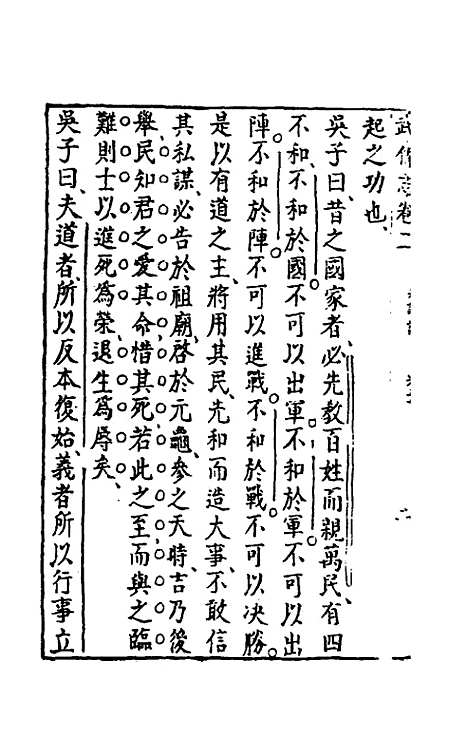 武備志卷二
起之功也
吳子曰、昔之國家者、必先教百姓而親萬民、有四
不和、不和於國、不可以出軍。不和於軍、不可以出
陣。不和於陣、不可以進戰。不和於戰、不可以決勝。
是以有道之主、將用其民、先和而造大事、不敢信
其私謀、必告於祖廟、啓於元龜、參之天時、吉乃後
舉、民知君之愛其命惜其死、若此之至而與之臨
難、則士以進死爲榮、退生爲辱矣、
吳子曰、夫道者、所以反本復始、義者所以行事立